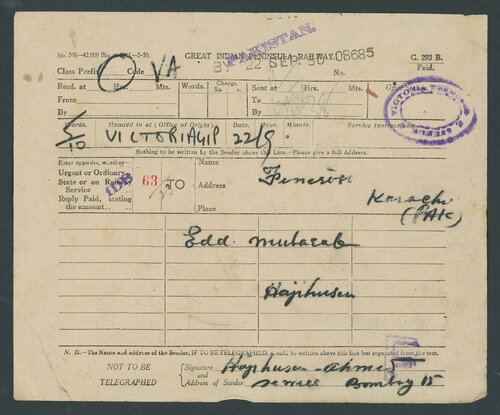 PAKISTAN.
GREAT INDIAN PENINSULA RAILWAY.
G. 203 B.
Paid.
22 SEP. 50 08685
Class Prefix Code
O VA
No.
Recd. at Hrs. Mts. Words. Charge. Rs. Sent at Hrs. Mts.
From
To
By
By
Words. Handed in at (Office of Origin). Date. Hour. Minute. Service Instructions
5/10 VICTORIAGIP 22/9
Nothing to be written by the Sender above this Line.—Please give a full Address.
Enter opposite, whether—
Urgent or Ordinary
State or on
Service
Reply Paid, stating
the amount
63
TO
Name
Address
Place
Karachi
(PAK)
Edd Mubarak
Hajihusen
N. B.—The Name and address of the Sender, IF TO BE TELEGRAPHED, should be written above this line but separated from the text.
NOT TO BE
TELEGRAPHED
Signature
and
Address of Sender
Hajihusen Ahmed
Bombay 15